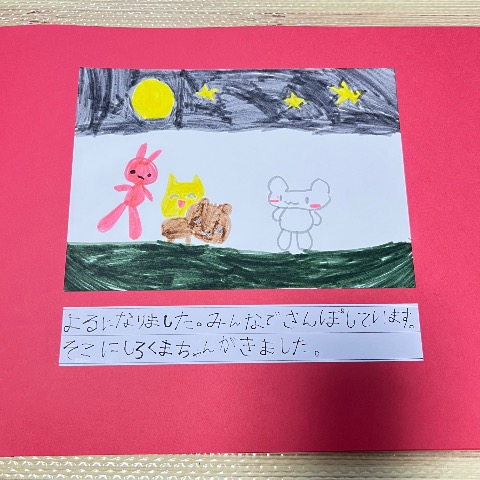 よるになりました。みんなでさんぽしています。
そこにしろくまちゃんがきました。